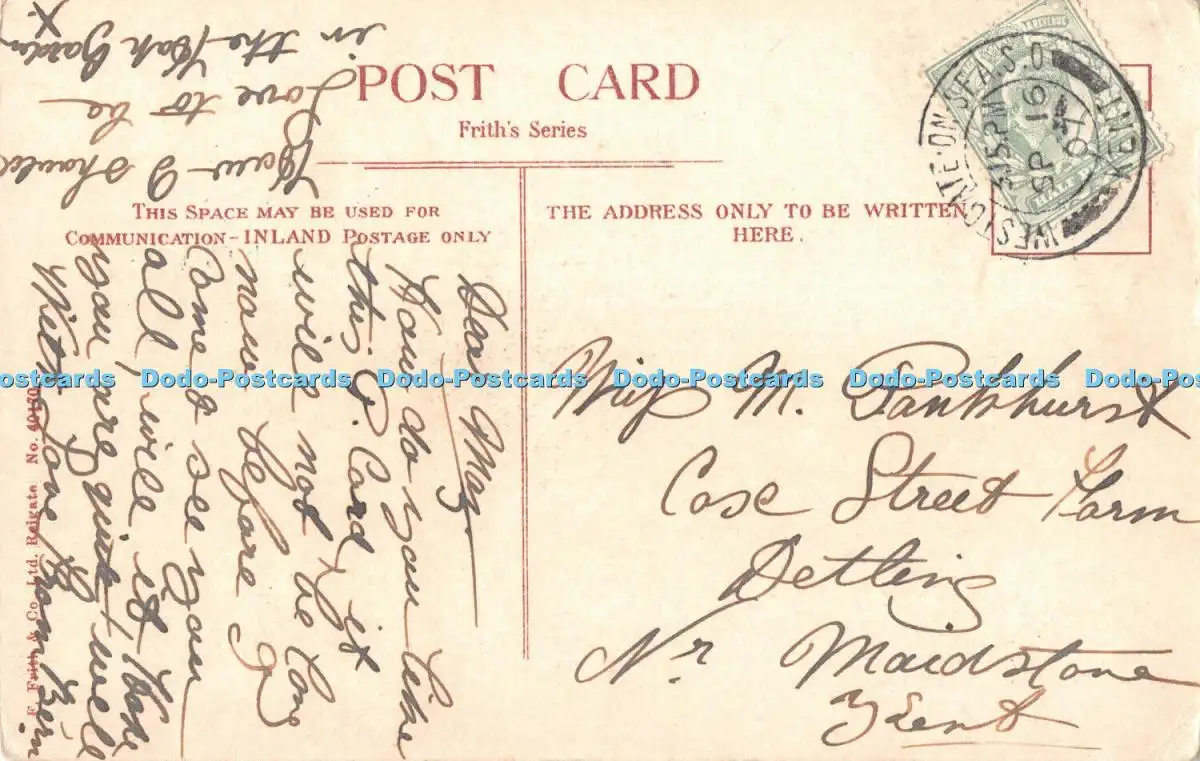 POST CARD
Frith's Series
THIS SPACE MAY BE USED FOR
COMMUNICATION-INLAND POSTAGE ONLY
THE ADDRESS ONLY TO BE WRITTEN
HERE.
WESTGATE-ON-SEA.S.O
KENT
3.15PM
SP 16
07
REVENUE
Miss M. Pankhurst
Cose Street Farm
Detling
Nr Maidstone
Kent
Dear May
How do you like
this P. Card, it
will not be long
now before I
Come & see you
all, will it. Hope
you are quite well
With Love from
How I should
Love to be
in the Garden
X
F. Frith & Co., Ltd. Reigate No.
Dodo-Postcards Dodo-Postcards Dodo-Postcards Dodo-Postcards Dodo-Postcards Dodo-Postcards